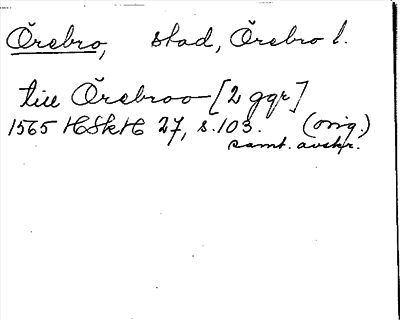 Örebro, stad, Örebro l.
till Örebroo [2 ggr]
1565 HSkH 27, s. 103. (orig.)
samt. avskr.